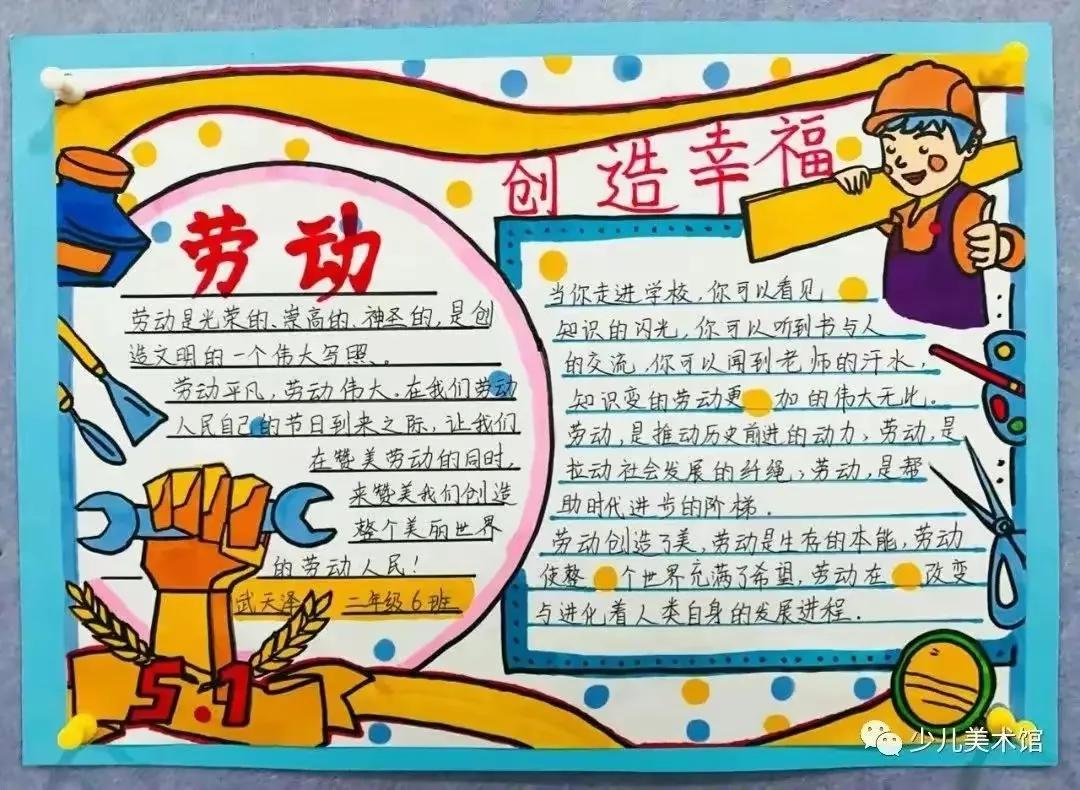 创造幸福
劳动
劳动是光荣的、崇高的、神圣的,是创
造文明的一个伟大写照、。
劳动平凡,劳动伟大。在我们劳动
人民自己的节日到来之际,让我们
在赞美劳动的同时,
来赞美我们创造
整个美丽世界
的劳动人民!
武天泽 二年级6班
5.1
当你走进学校,你可以看见
知识的闪光,你可以听到书与人
的交流,你可以闻到老师的汗水,
知识变的劳动更加的伟大无比。
劳动,是推动历史前进的动力;劳动,是
拉动社会发展的纤绳;劳动,是帮
助时代进步的阶梯.
劳动创造了美,劳动是生存的本能,劳动
使整个世界充满了希望,劳动在改变
与进化着人类自身的发展进程.
少儿美术馆